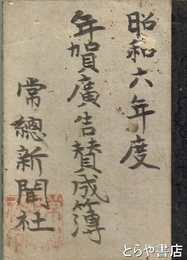 昭和六年度
年賀廣告賛成簿
常總新聞社
とらや書店